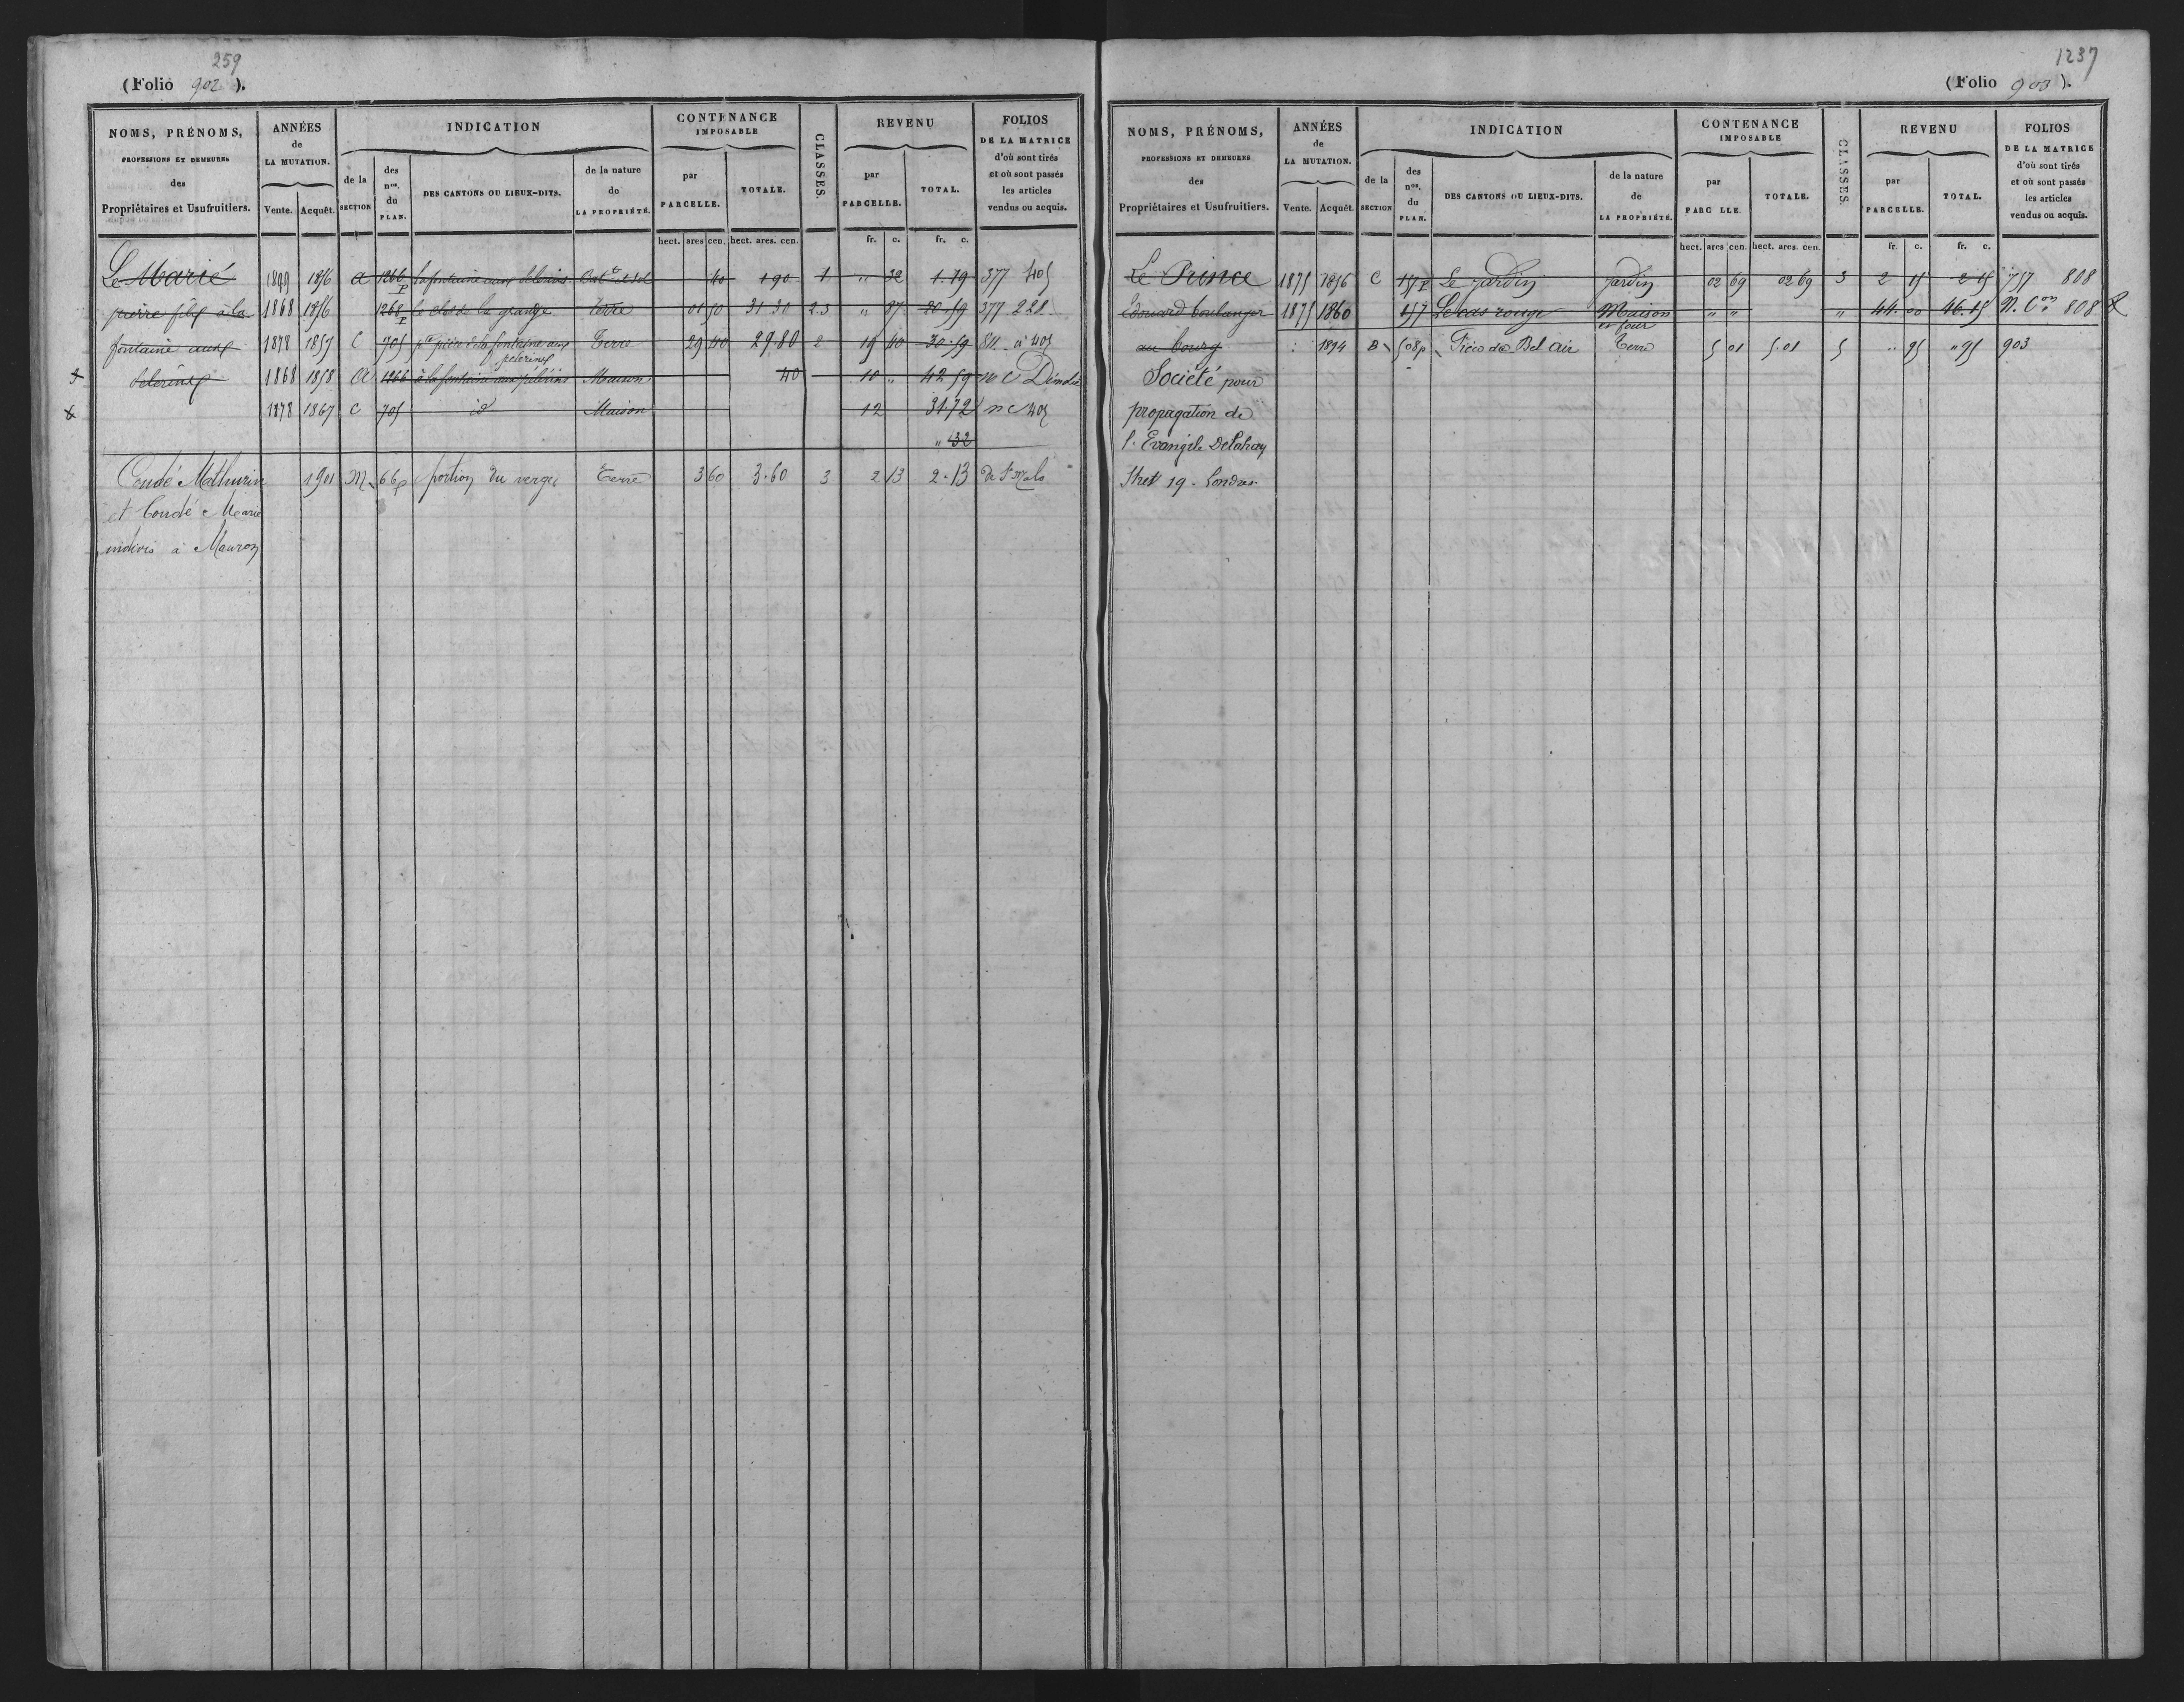 259
(Folio 902).
NOMS, PRÉNOMS,
PROFESSIONS ET DEMEURES
des
Propriétaires et Usufruitiers.
ANNÉES
de
LA MUTATION.
Vente. Acquêt.
INDICATION
de la
SECTION
des
nos.
du
PLAN.
DES CANTONS OU LIEUX-DITS.
de la nature
de
LA PROPRIÉTÉ.
CONTENANCE
IMPOSABLE
par
PARCELLE.
TOTALE.
CLASSES.
REVENU
par
PARCELLE.
TOTAL.
FOLIOS
DE LA MATRICE
d'où sont tirés
et où sont passés
les articles
vendus ou acquis.
hect. ares cen. hect. ares. cen. fr. c. fr. c.
Le Marié 1856 a 1266 p la fontaine aux pelerins 40 1 90 1 " 32 1.79 377 405
pierre fils à la 1868 1856 1268 p le clos de la grange Terre 01 50 31 30 2.3 " 87 20.59 377 228
fontaine aux 1878 1857 C 705 pte pièce de la fontaine aux Terre 29 40 29.80 2 15 40 30.59 811 a 405
pelerins
pelerins 1868 1858 a 1266 à la fontaine aux pélérins Maison 40 10 " 42 59 n c Démolie
1878 1867 C 705 id Maison 12 31.72 n c 405
" 32
Coudé Mathurin 1901 M 66p portion du verger Terre 3 60 3.60 3 2 13 2.13 de St Malo
et Coudé Marie
indivis à Mauron
1237
(Folio 903).
NOMS, PRÉNOMS,
PROFESSIONS ET DEMEURES
des
Propriétaires et Usufruitiers.
ANNÉES
de
LA MUTATION.
Vente. Acquêt.
INDICATION
de la
SECTION
des
nos.
du
PLAN.
DES CANTONS OU LIEUX-DITS.
de la nature
de
LA PROPRIÉTÉ.
CONTENANCE
IMPOSABLE
par
PARC LLE.
TOTALE.
CLASSES
REVENU
par
PARCELLE.
TOTAL.
FOLIOS
DE LA MATRICE
d'où sont tirés
et où sont passés
les articles
vendus ou acquis.
hect. ares cen. hect. ares. cen. fr. c. fr. c.
Le Prince 1875 1856 C 157 Le jardin jardin 02 69 02 69 3 2 15 2 15 757 808
Edouard boulanger 1875 1860 157 Le cas rouge Maison " " " 44.00 46.15 N. Con 808
et four
au bourg 1894 B 508p Pièce de Bel air Terre 5 01 5.01 5 " 95 " 95 903
Société pour
propagation de
l'Evangile Delahay
Stret 19 - Londres